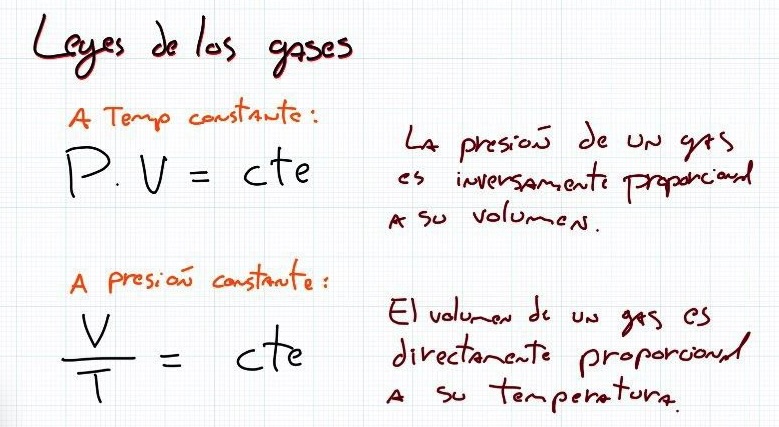 Leyes de los gases
A Temp constante:
P. V = cte
La presión de un gas
es inversamente proporcional
a su volumen.
A presión constante:
V/T = cte
El volumen de un gas es
directamente proporcional
a su temperatura.